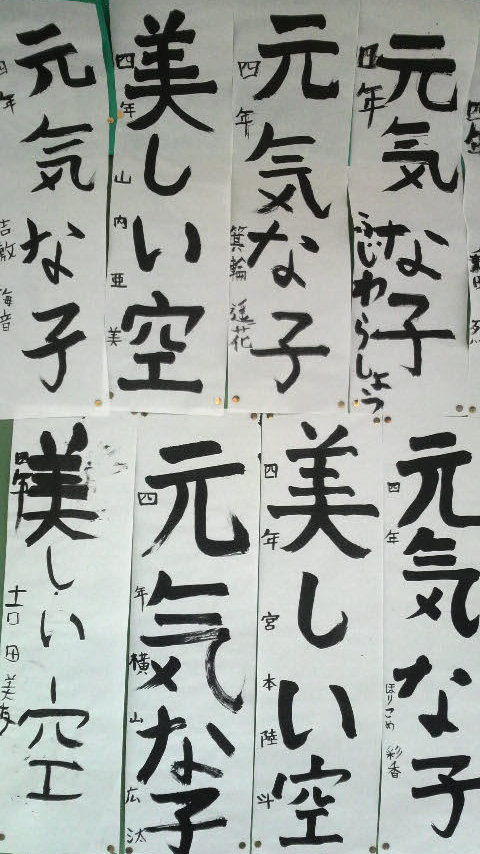 元気な子
四年
ふじわらしょう
元気な子
四年 箕輪 遥花
美しい空
四年 山内亜美
元気な子
四年
海音
元気な子
四年 ほりごめ 彩香
美しい空
四年 宮本陸斗
元気な子
四年 横山広汰
美しい空
四年 吉田美